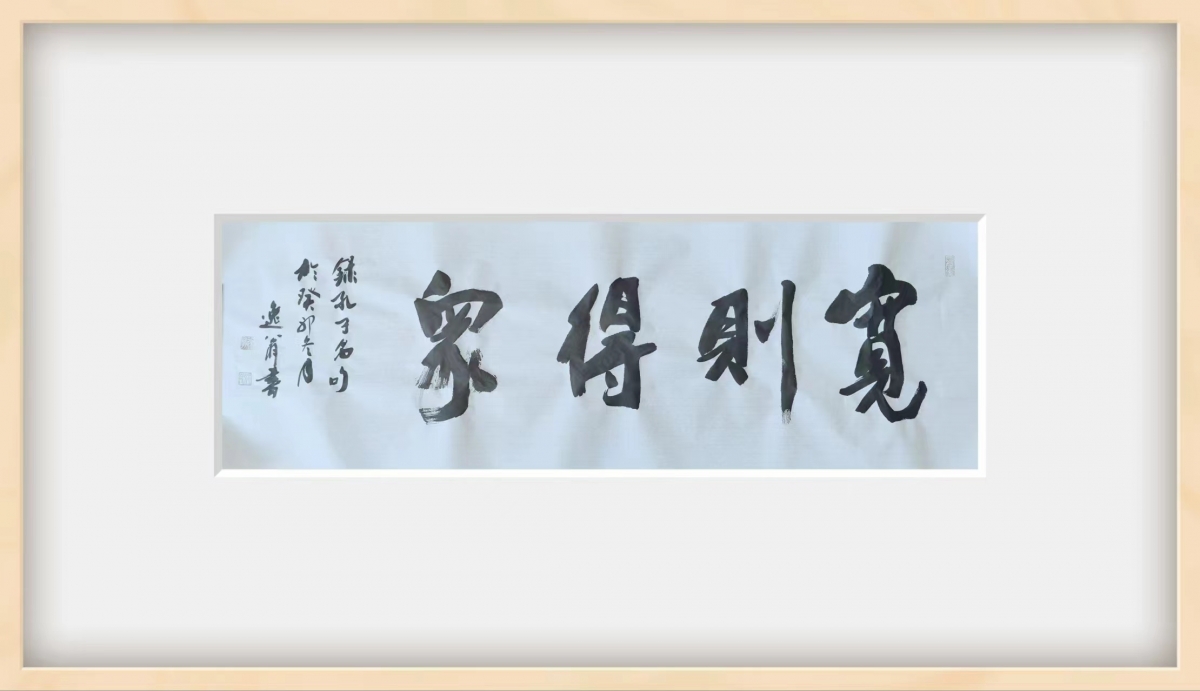 寬則得眾
錄孔子名句
於癸卯冬月
逸翁書